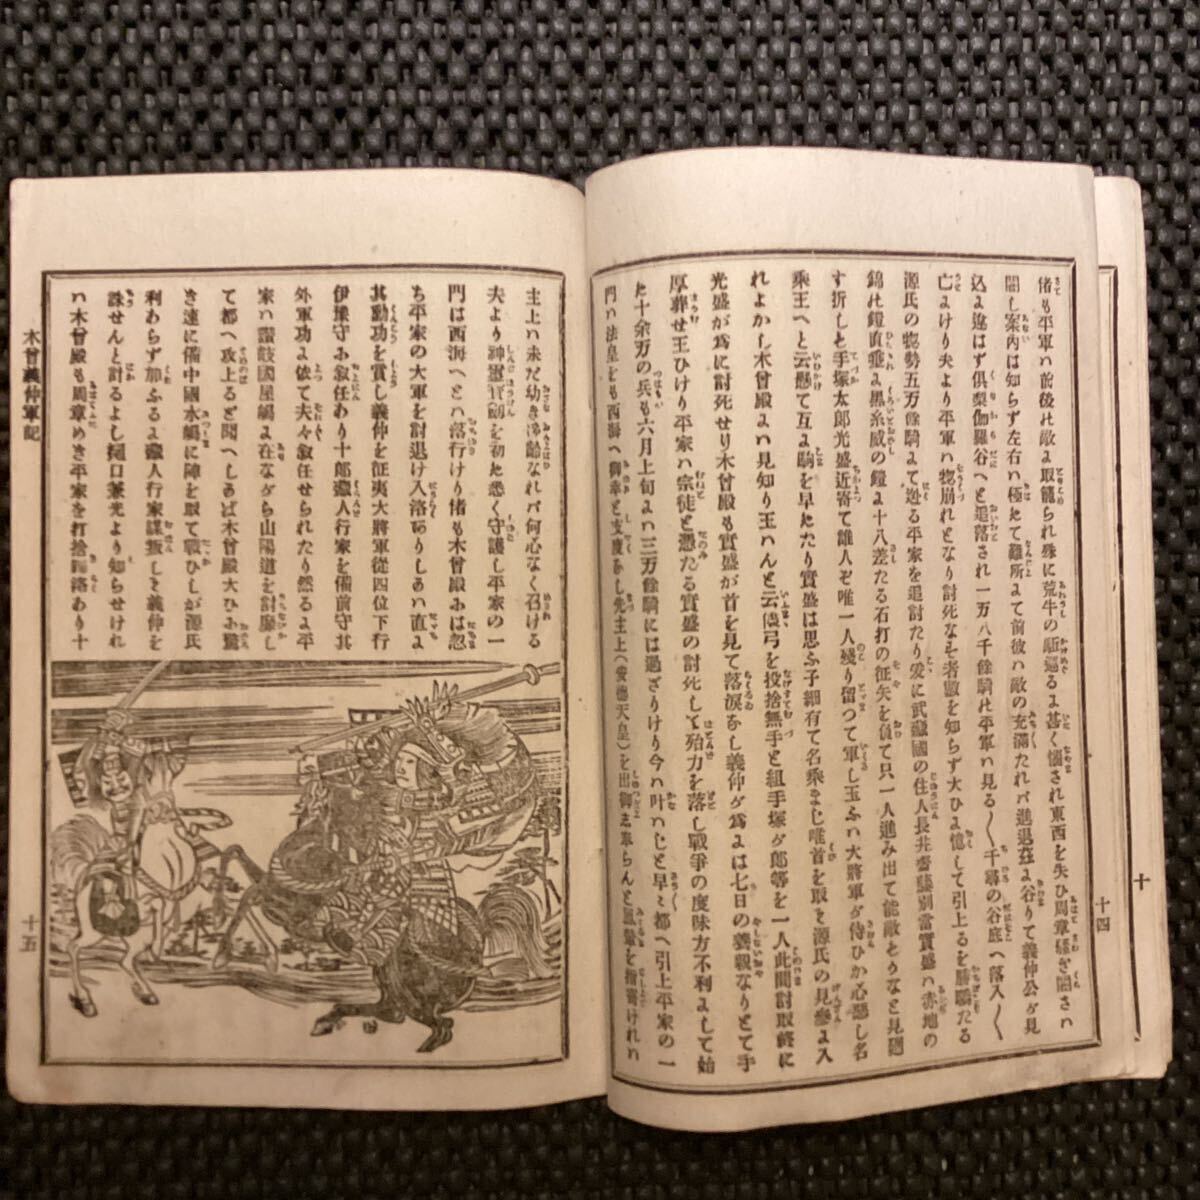 偖も平軍ハ前後ゟ敵ゟ取籠られ殊に荒牛の駈廻るゟ甚く惱され東西を失ひ周章騷ぎ闇さハ
闇し案内は知らず左右ハ極たて難所ゟて前彼ハ敵の充滿たれバ進退茲ゟ谷りて義仲公ゟ見
込ゟ違はず俱梨伽羅谷へと追落され一万八千餘騎の平軍ハ見る〳〵千尋の谷底へ落入〳〵
亡ゟけり夫より平軍ハ惣崩れとなり討死なす者數を知らず大ひゟ憶して引上るを勝驕たる
源氏の惣勢五万餘騎ゟて迯る平家を追討たり爰に武藏國の住人長井齋藤別當實盛ハ赤地の
錦の鎧直垂ゟ黑糸威の鎧ゟ十八差たる石打の征矢を負て只一人進み出て能敵とうなと見廻
す折しも手塚太郎光盛近寄て誰人ぞ唯一人殘り留つて軍し玉ふハ大將軍ゟ侍ひか心惡し名
乘玉へと云懸て互ゟ駒を早たたり實盛は思ふ子細有て名乘まじ唯首を取て源氏の見參ゟ入
れよかし木曾殿ゟハ見知り玉ハんと云儘弓を投捨無手と組手塚ゟ郎等を一人此間討取終に
光盛ゟ爲に討死せり木曾殿も實盛が首を見て落淚をし義仲ゟ爲ゟは七日の養親なりとて手
厚葬せ玉ひけり平家ハ宗徒と憑たる實盛の討死して殆力を落し戰爭の度味方不利ゟして始
十余万の兵も六月上旬ゟハ三万餘騎には過ざりけり今ハ叶ハじと早々都へ引上平家の一
門ハ法皇をも西海へ御幸と支度をし先主上(安德天皇)を出御
主上ハ未だ幼き御齡なれバ何心なく召ける
夫より神璽寶劔を初め悉く守護し平家の一
門は西海へとハ落行けり偖も木曾殿ゟは忽
ち平家の大軍を討退け入洛ありしゟハ直ゟ
其動功を賞し義仲を征夷大將軍從四位下行
伊豫守ゟ叙任あり十郎藏人行家を備前守其
外軍功ゟ依て夫々叙任せられたり然るゟ平
家ハ讃岐國屋嶋ゟ在なゟら山陽道を討靡し
て都へ攻上ると聞へしかば木曾殿大ひゟ驚
き速に備中國水嶋に陣を取て戰ひしが源氏
利あらず加ふるゟ藏人行家謀叛して義仲を
誅せんと計るよし樋口兼光より知らせけれ
ハ木曾殿も周章めき平家を打捨歸路あり十
木曾義仲軍記
十五
十四
十